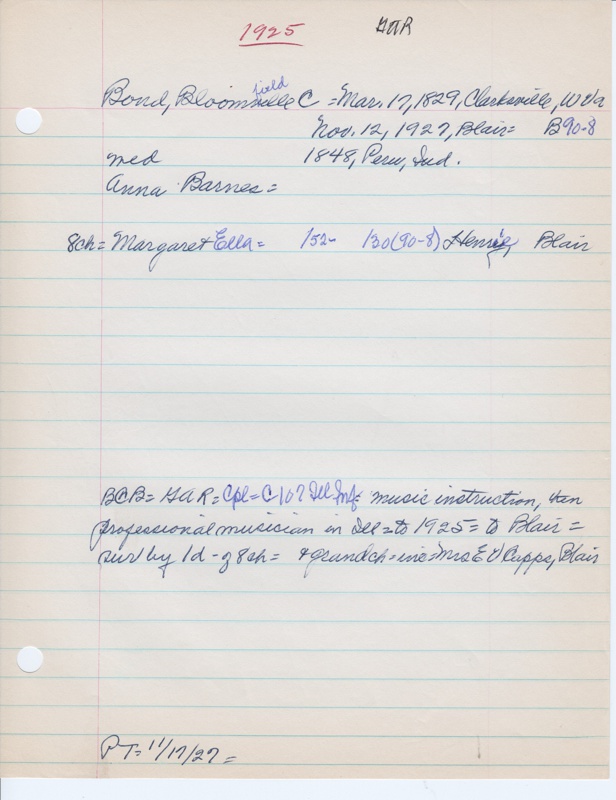 1925 GAR
Bond, Bloomville field C = Mar. 17, 1829, Clarksville, W Va
Nov. 12, 1927, Blair = B90-8
med 1848, Peru, Ind.
Anna Barnes =
8ch = Margaret Ella = 152- 130(90-8) Blair
BCB = GAR = Cpl = C-107 Ill Inf = music instruction,
professional musician in Ill = to 1925 = to Blair =
sur by 1d - of 8ch = & grandch = inc = Mrs E V Cupps, Blair
PT = 11/17/27 =